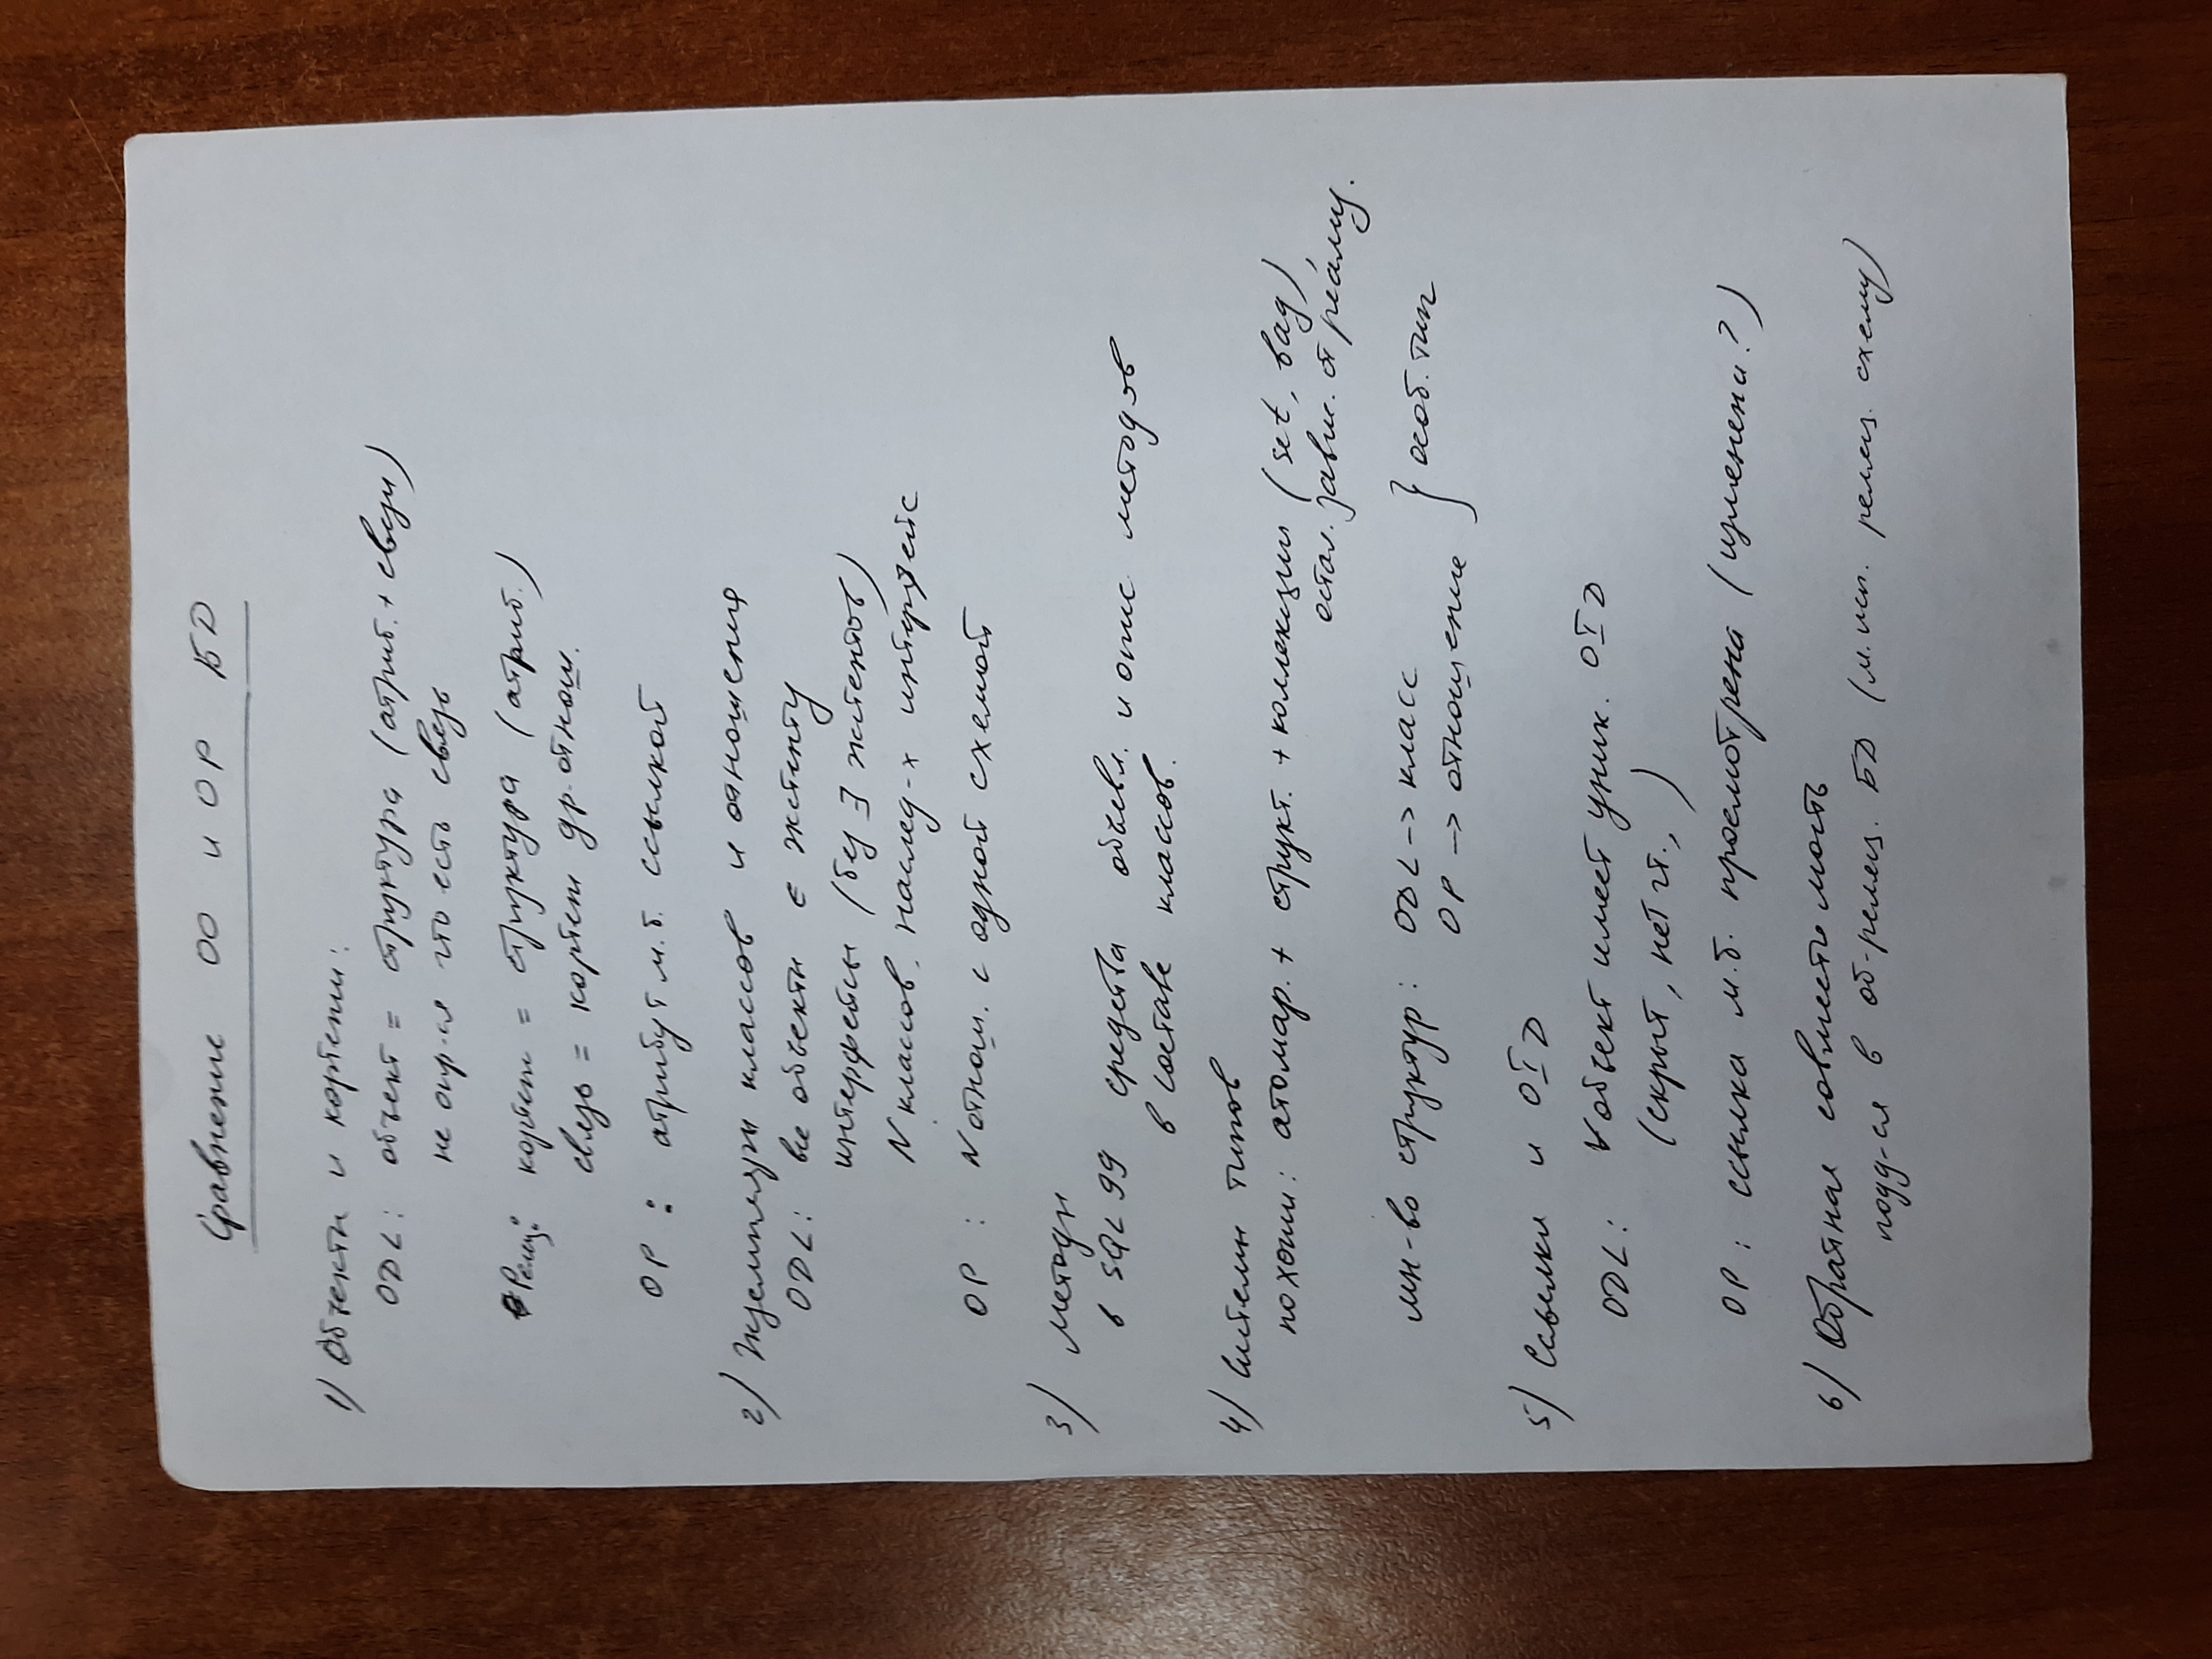 Сравнение ОО и ОР БД
1) Объекты и кортежи:
ODL: объект = структура (атриб. + связи)
не опр-ся что есть связь
Реляц: кортеж = структура (атриб.)
связь = кортеж др. отнош.
ОР : атрибут м.б. ссылкой
2) Экземпляры классов и отношения
ODL: все объекты ∈ экстенту
интерфейсы (без ∃ экстентов)
N классов, наслед-х интерфейс
ОР : N отнош. с одной схемой
3) Методы
в SQL99 средства объявл. и опис. методов
в составе классов.
4) Системы типов
похожи: атомар. + структ. + коллекции (set, bag),
остал. завис. от реализ.
мн-во структур: ODL -> класс
ОР -> отношение } особ. тип
5) Ссылки и OID
ODL: ∀ объект имеет уник. OID
(скрыт, нет чт., )
ОР: ссылка м.б. просмотрена (изменена?)
6) Обратная совместимость
подд-ся в об-реляц. БД (м. исп. реляц. схему)